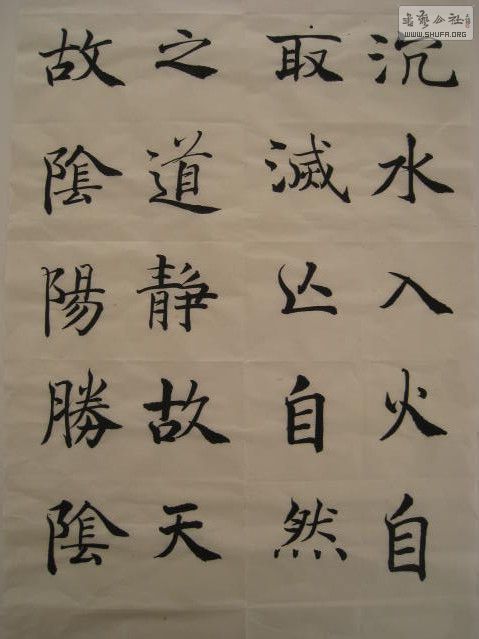 沉水入火自
取滅亾自然
之道静故天
故陰陽勝陰
書藝公社
WWW.SHUFA.ORG